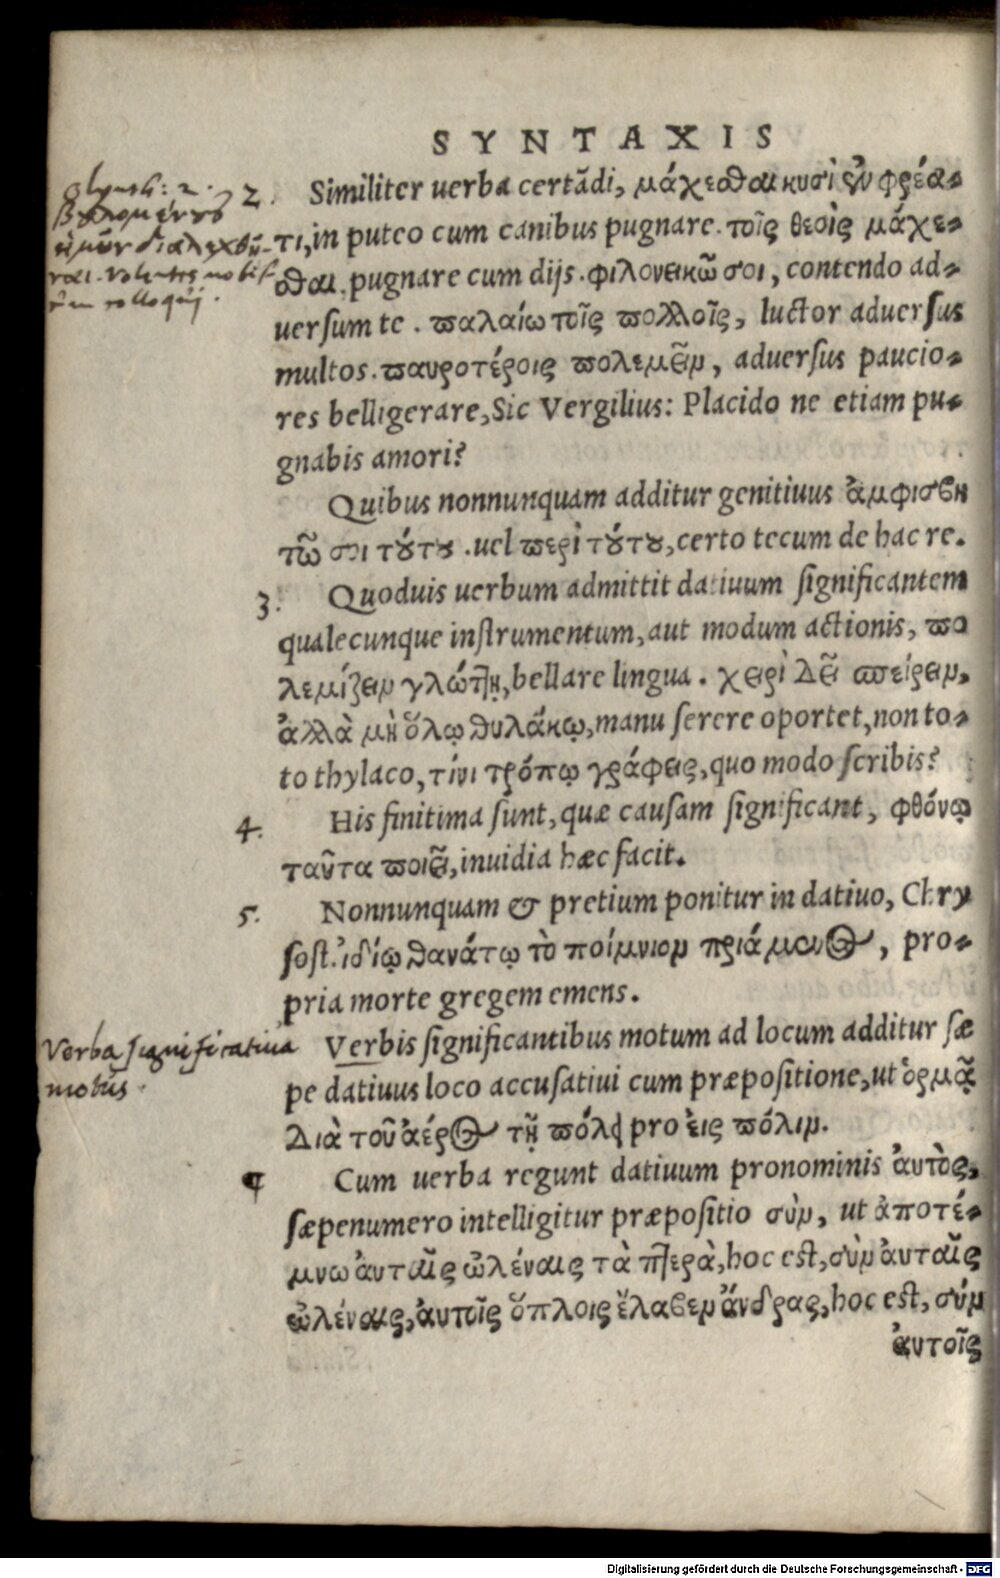 SYNTAXIS
2. Similiter uerba certãdi, μάχεσθαι κυσὶ ἐν φρέα-
τι, in puteo cum canibus pugnare. τοῖς θεοῖς μάχε-
σθαι. pugnare cum dijs. φιλονεικῶ σοι, contendo ad-
uersum te. παλαίω τοῖς πολλοῖς, luctor aduersus
multos. παυροτέροις πολεμεῖν, aduersus paucio-
res belligerare, Sic Vergilius: Placido ne etiam pu-
gnabis amori?
Quibus nonnunquam additur genitiuus ἀμφισβη
τῶ σοι τούτου. uel περὶ τούτου, certo tecum de hac re.
3. Quoduis uerbum admittit datiuum significantem
qualecunque instrumentum, aut modum actionis, πο
λεμίζειν γλώττῃ, bellare lingua. χειρὶ δεῖ σπείρειν,
ἀλλὰ μὴ ὅλῳ θυλάκῳ, manu serere oportet, non to-
to thylaco, τίνι τρόπῳ γράφεις, quo modo scribis?
4. His finitima sunt, quæ causam significant, φθόνῳ
ταῦτα ποιεῖ, inuidia hæc facit.
5. Nonnunquam & pretium ponitur in datiuo, Chry
sost. ἰδίῳ θανάτῳ τὸ ποίμνιον πριάμενος, pro-
pria morte gregem emens.
Verba significatiua
motus.
Verbis significantibus motum ad locum additur sæ
pe datiuus loco accusatiui cum præpositione, ut ὁρμᾷ
διὰ τοῦ ἀέρος τῇ πόλει pro εἰς πόλιν.
¶ Cum uerba regunt datiuum pronominis ἀυτὸς,
sæpenumero intelligitur præpositio σὺν, ut ἀποτέ-
μνω ἀυταῖς ὠλέναις τὰ πτερὰ, hoc est, σὺν ἀυταῖς
ὠλέναις, ἀυτοῖς ὅπλοις ἔλαβεν ἄνδρας, hoc est, σύν
ἀυτοῖς
2.
βουλομένου
ἡμῖν διαλεχθῆ-
ναι. volentes nobis-
cum colloqui.
Digitalisierung gefördert durch die Deutsche Forschungsgemeinschaft - DFG